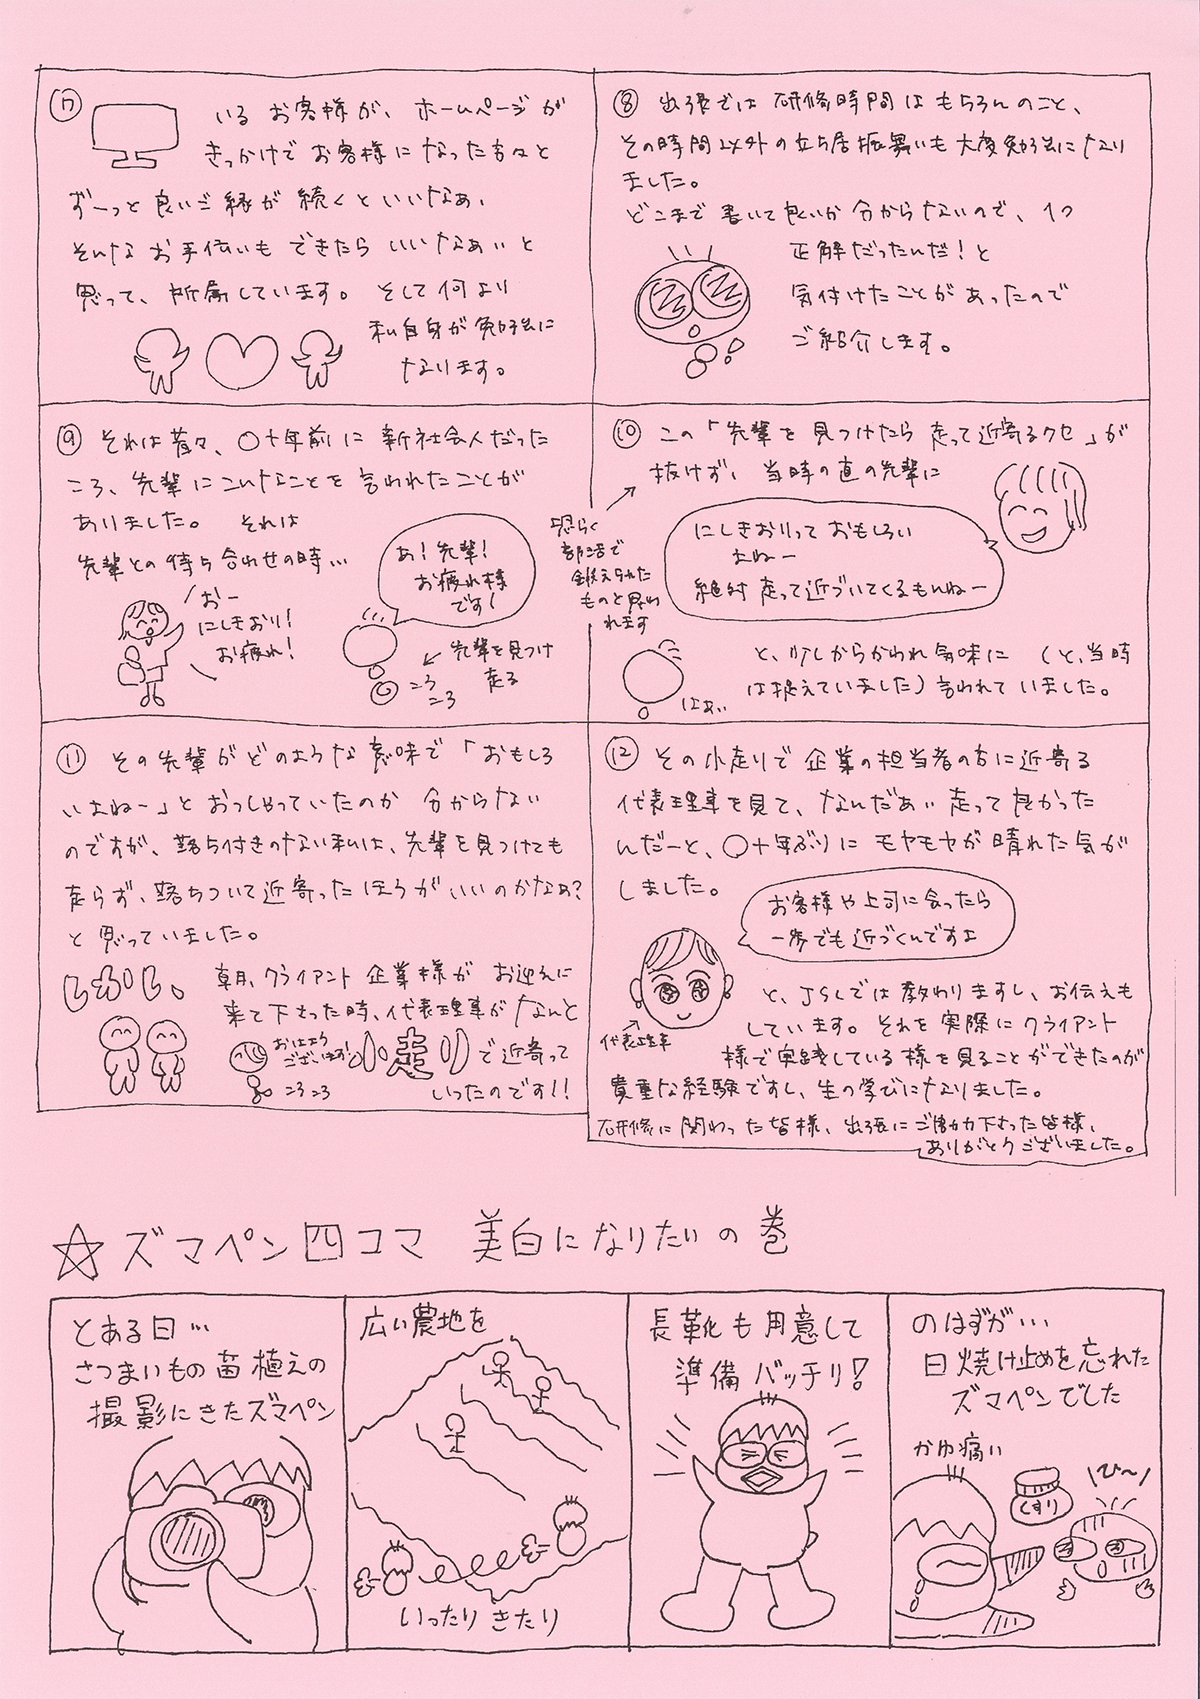 ⑦
いる お客様が、ホームページが
きっかけで お客様に なった方々と
ずーっと 良いご縁が 続くといいなぁ、
そんな お手伝いも できたら いいなぁぃと
思って、所属しています。 そして何より
私自身が 勉強に
なります。
⑧ 出張では 研修時間は もちろんのこと、
その時間以外の立ち居振舞いも 大変勉強になり
ました。
どこまで 書いて良いか 分からないので、1つ
正解だったんだ！と
気付けたことが あったので
ご紹介します。
⑨ それは昔々、〇十年前に 新社会人だった
ころ、先輩に こんなことを 言われたことが
ありました。 それは
先輩との 待ち合わせの時…
おー
にしきおり！
お疲れ！
あ！先輩！
お疲れ様
です！
先輩を見つけ
走る
ころ
ころ
⑩ この「先輩を 見つけたら 走って近寄るクセ」が
抜けず、当時の直の先輩に
恐らく
部活で
鍛えられた
ものと思わ
れます
にしきおりって おもしろい
よねー
絶対 走って近づいてくるもんねー
と、少しからかわれ気味に （と、当時
は捉えていました）言われて いました。
はぁぃ
⑪ その先輩が どのような 意味で 「おもしろ
いよねー」と おっしゃっていたのか 分からない
のですが、落ち付きのない私は、先輩を見つけても
走らず、落ちついて近寄った ほうが いいのかなぁ？
と 思っていました。
しかし、
朝、クライアント 企業様が お迎えに
来て下さった時、代表理事が なんと
おはよう
ございます！
小走り で近寄って
ころころ
いったのです！！
⑫ その小走りで 企業の担当者の方に近寄る
代表理事を見て、なんだぁぃ 走って良かった
んだーと、〇十年ぶりに モヤモヤが 晴れた気が
しました。
お客様や上司に会ったら
一歩でも近づくんですよ
代表理事
と、JSLでは 教わりますし、お伝えも
しています。それを 実際に クライアント
様で実践している 様を 見ることができたのが
貴重な経験ですし、生の学びになりました。
研修に 関わった皆様、出張に ご協力下さった 皆様、
ありがとうございました。
☆ズマペン四コマ 美白になりたいの巻
とある日…
さつまいもの苗植えの
撮影にきたズマペン
広い農地を
いったり きたり
長靴も用意して
準備バッチリ！
のはずが…
日焼け止めを忘れた
ズマペンでした
かゆ痛い
くすり
び〜